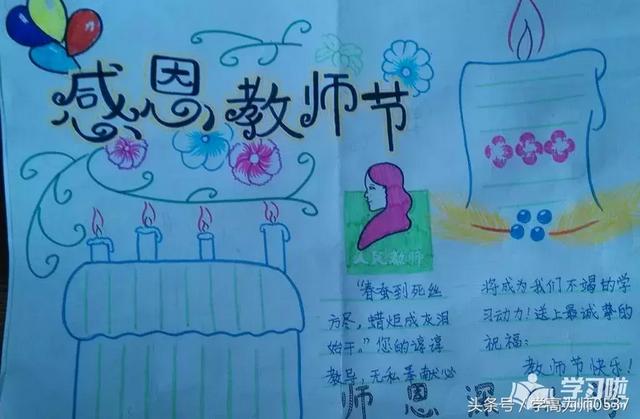 感恩教师节
人民教师
"春蚕到死丝
方尽，蜡炬成灰泪
始干。"您的谆谆
教导，无私奉献必
将成为我们不竭的学
习动力！送上最诚挚的
祝福：
教师节快乐！
师恩深
学习啦
头条号 / 学高为师